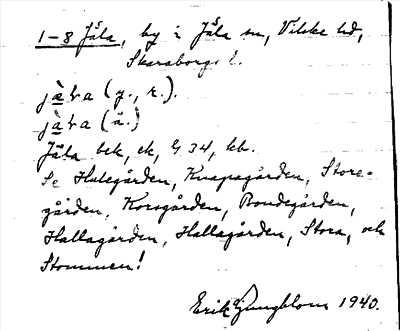 1-8 Jäla, by i Jäla sn, Vilske hd,
Skaraborgs l.
(y., r.).
(ä.)
Jäla bek, ek, G 34, kb.
Se Hulegården, Knapagården, Store-
gården, Korsgården, Bondegården,
Hallagården, Hallagården, Stora, och
Stommen!
Erik Ljungblom 1940.